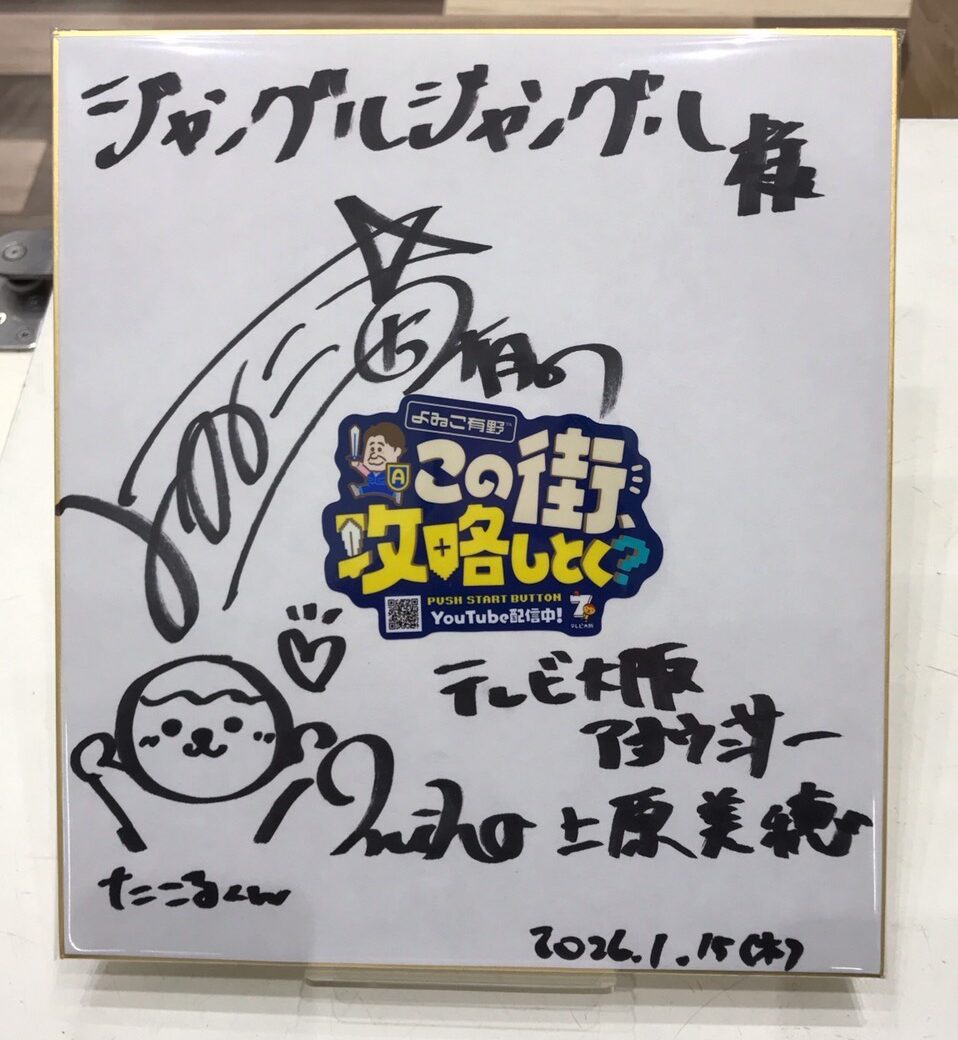 ジャングルジャングル様
よゐこ有野
この街、
攻略しとく?
PUSH START BUTTON
YouTube配信中!
テレビ大阪
テレビ大阪
アナウンサー
Miho 上原美穂
たこるくん
2026.1.15(木)